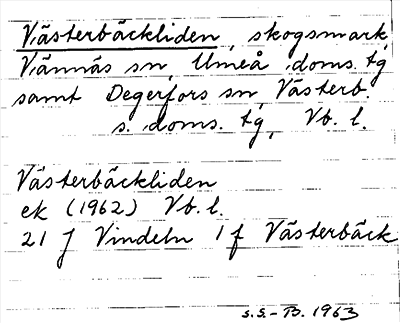 Västerbäckliden, skogsmark,
Vännäs sn, Umeå doms. tg
samt Degerfors sn, Västerb.
s. doms. tg, Vb. l.
Västerbäckliden
ek (1962) Vb. l.
21 J Vindeln 1 f Västerbäck
S.S.-B. 1963